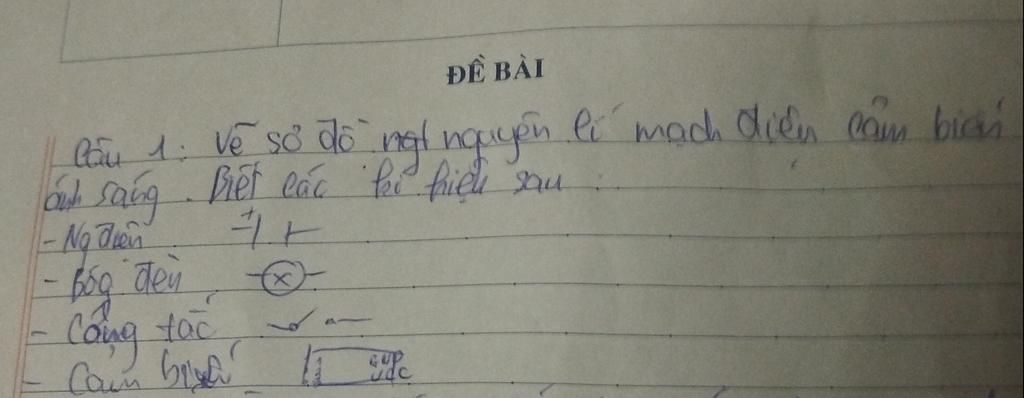 ĐỀ BÀI
Câu 1: Vẽ sơ đồ nguyên lí mạch điện cảm biến
ánh sáng. Biết các kí hiệu sau:
- Ng điện + -
- Bóg đèn
- Công tắc
- Cảm biến